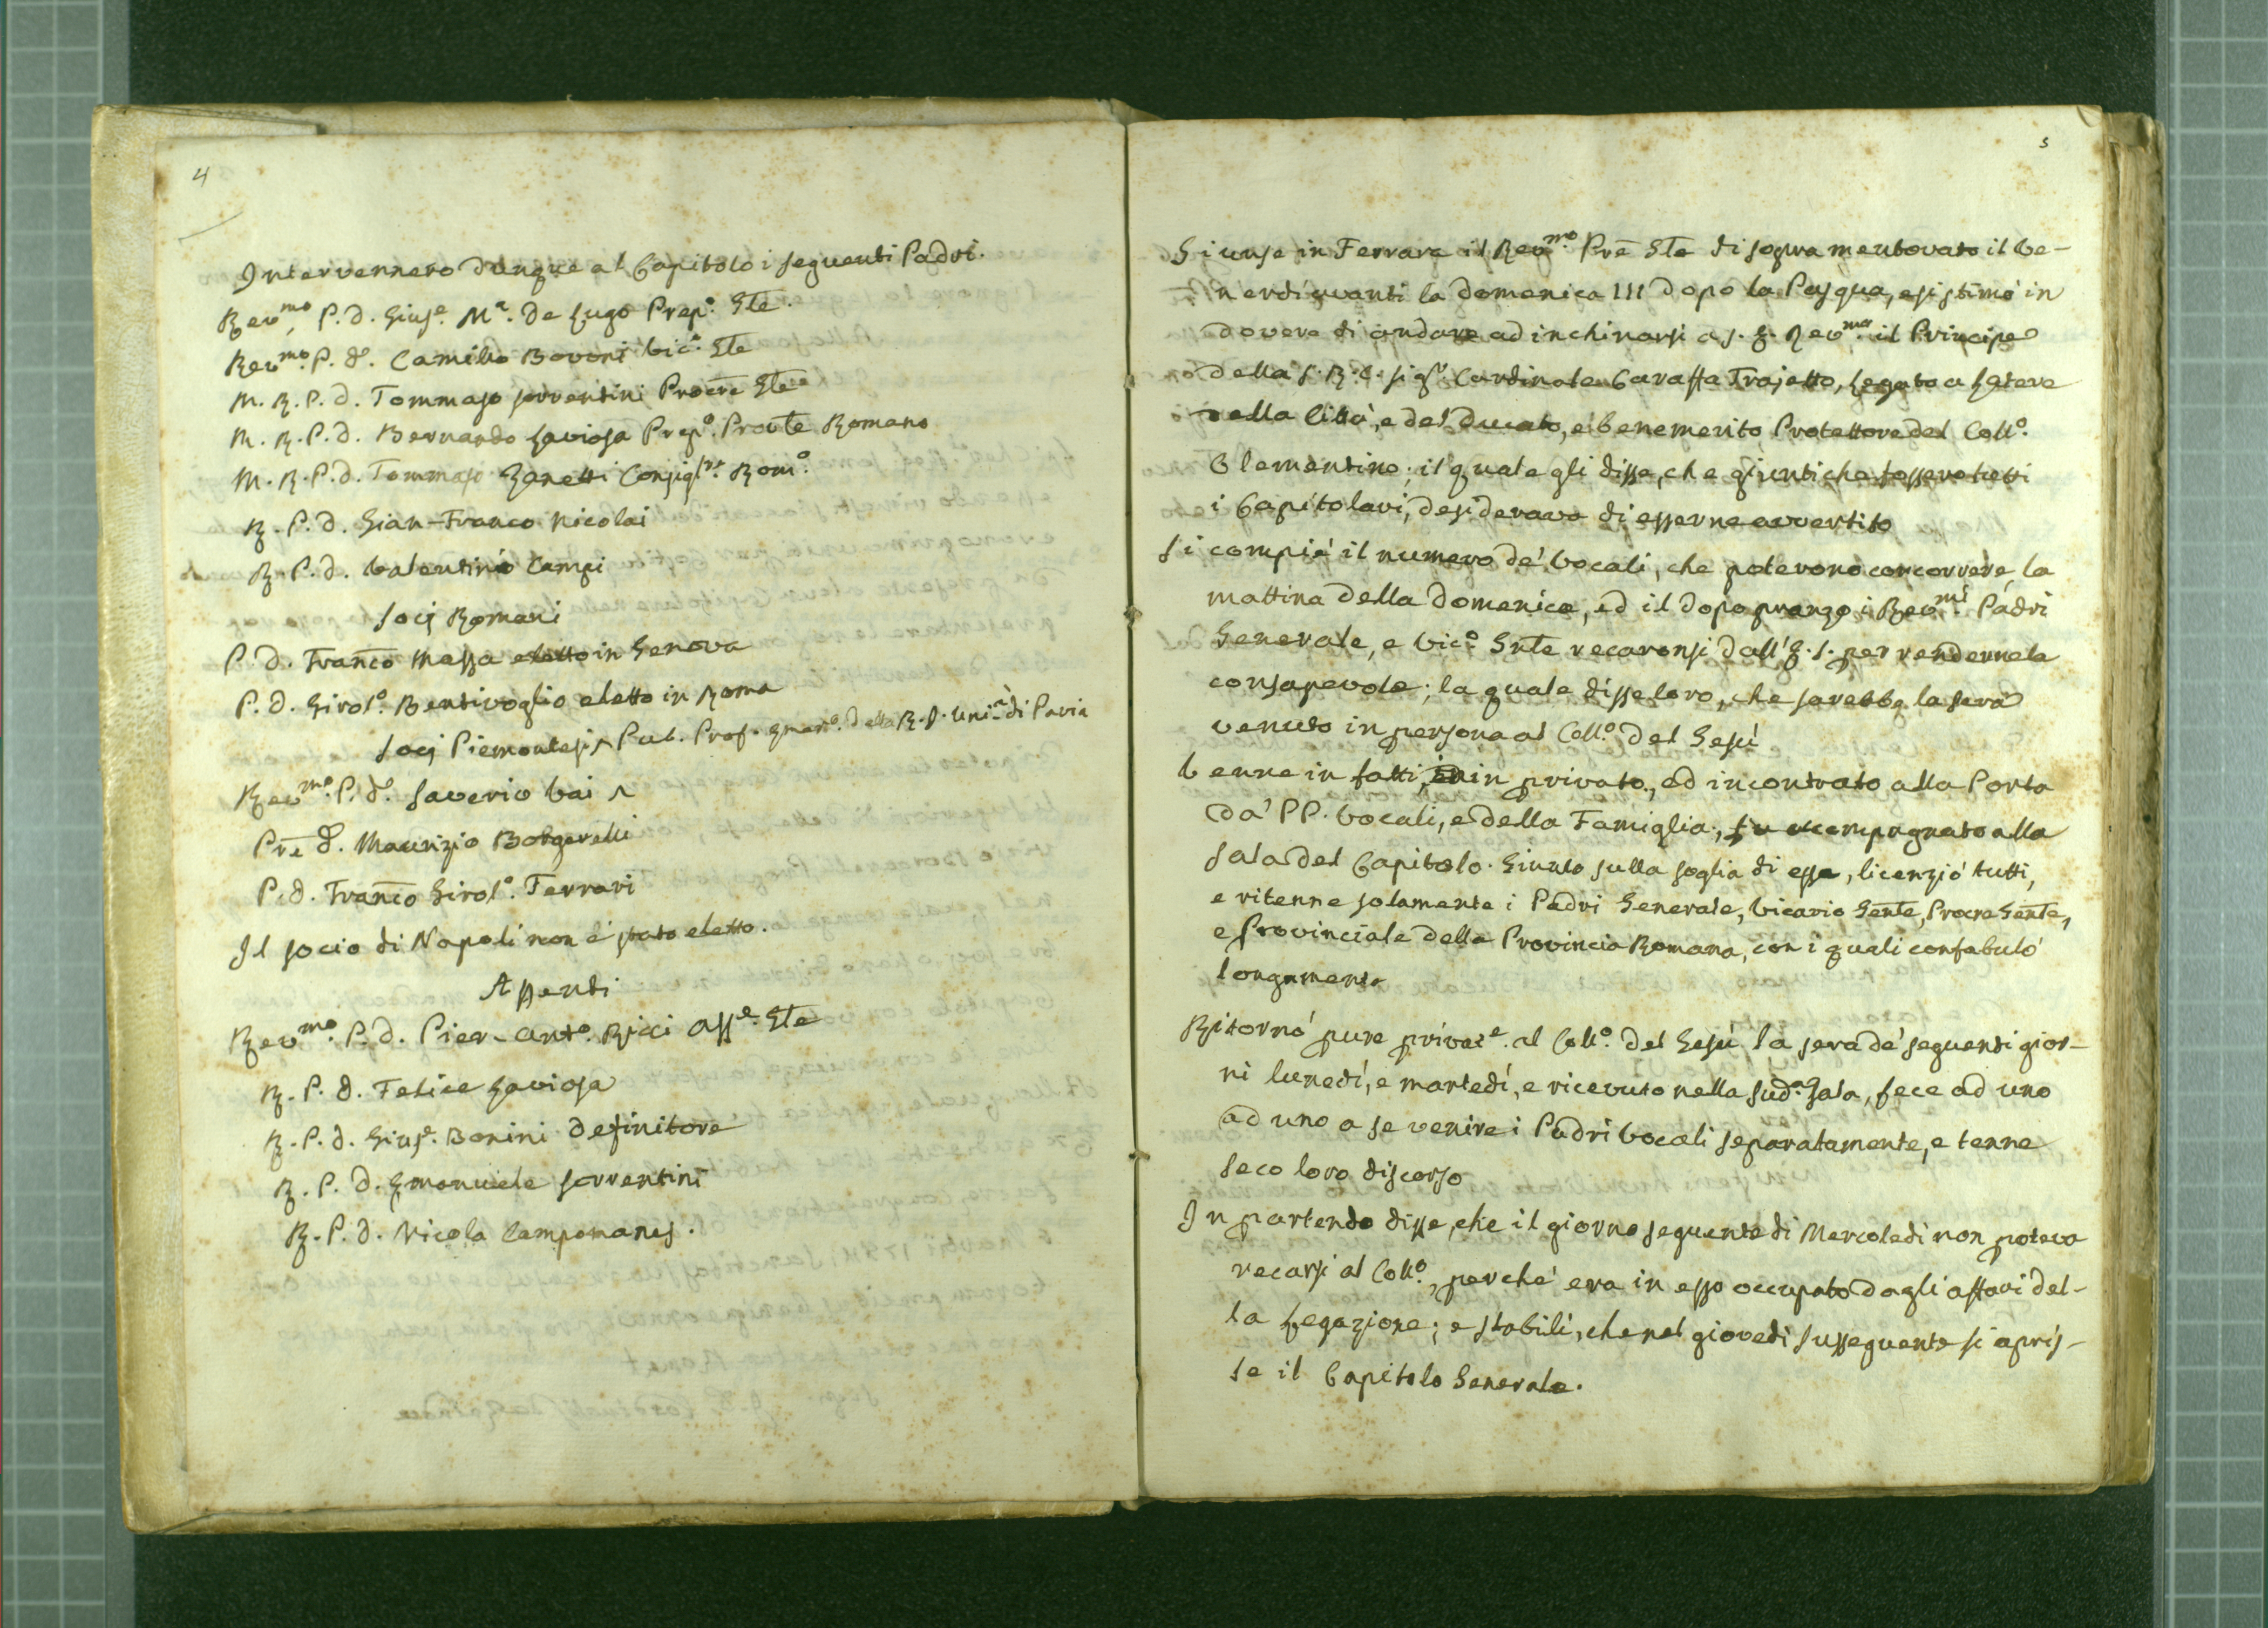 4
Intervennero dunque al Capitolo i seguenti Padri.
Rev.mo P. D. Gius.e M.a De Lugo Prep.o Gle.
Rev.mo P. D. Camillo Bovoni Vic.o Gle
M. R. P. D. Tommaso Sorrentini Procre Gle
M. R. P. D. Bernardo Laviosa Prep.o Provle Romano
M. R. P. D. Tommaso Zanetti Consigl.re Rom.o
R. P. D. Gian-Franco Nicolai
R. P. D. Valentino Campi
Socj Romani
P. D. Franco Massa eletto in Genova
P. D. Girol.o Bentivoglio eletto in Roma
Socj Piemontesi ^ Pub. Prof. della R. I. Uni.à di Pavia
Rev.mo P. D. Saverio Vai ^
Pre D. Maurizio Borgarelli
P. D. Franco Girol.o Ferrari
Il socio di Napoli non è stato eletto.
Assenti
Rev.mo P. D. Pier-Ant.o Ricci Ass.e Gle
R. P. D. Felice Laviosa
R. P. D. Gius.e Bonini Definitore
R. P. D. Emanuele Sorrentini
R. P. D. Nicola Campomanes.
5
Giunse in Ferrara il Rev.mo Pre Gle di sopra mentovato il Ve-
nerdi avanti la Domenica III dopo la Pasqua, e si stimò in
dovere di andare ad inchinarsi a S. E. Rev.ma il Principe
della S. R. C. Sig.r Cardinale Caraffa Trajetto, Legato a Latere
della Città, e del Ducato, e benemerito Protettore del Coll.o
Clementino; il quale gli disse, che giunti che fossero tutti
i Capitolari, desiderava di esserne avvertito
Si compiè il numero de' Vocali, che poterono concorrere, la
mattina della Domenica, ed il dopo pranzo i Rev.mi Padri
Generale, e Vic.o Gnle recaronsi dall' E. S. per rendernela
consapevole; la quale disse loro, che sarebbe la sera
venuto in persona al Coll.o del Gesù
Venne in fatti, in privato, ed incontrato alla Porta
da' PP. Vocali, e della Famiglia, fu accompagnato alla
sala del Capitolo. Giunto sulla soglia di essa, licenziò tutti,
e ritenne solamente i Padri Generale, Vicario Genle, Procre Genle,
e Provinciale della Provincia Romana, con i quali confabulò
longamente
Ritornò pure privat.e al Coll.o del Gesù la sera de' seguenti gior-
ni lunedì, e martedì, e ricevuto nella sud.a Sala, fece ad uno
ad uno a se venire i Padri Vocali separatamente, e tenne
seco loro discorso
In partendo disse, che il giorno seguente di Mercoledì non poteva
recarsi al Coll.o, perchè era in esso occupato dagli affari del-
la Legazione; e stabilì, che nel giovedì susseguente si apris-
se il Capitolo Generale.